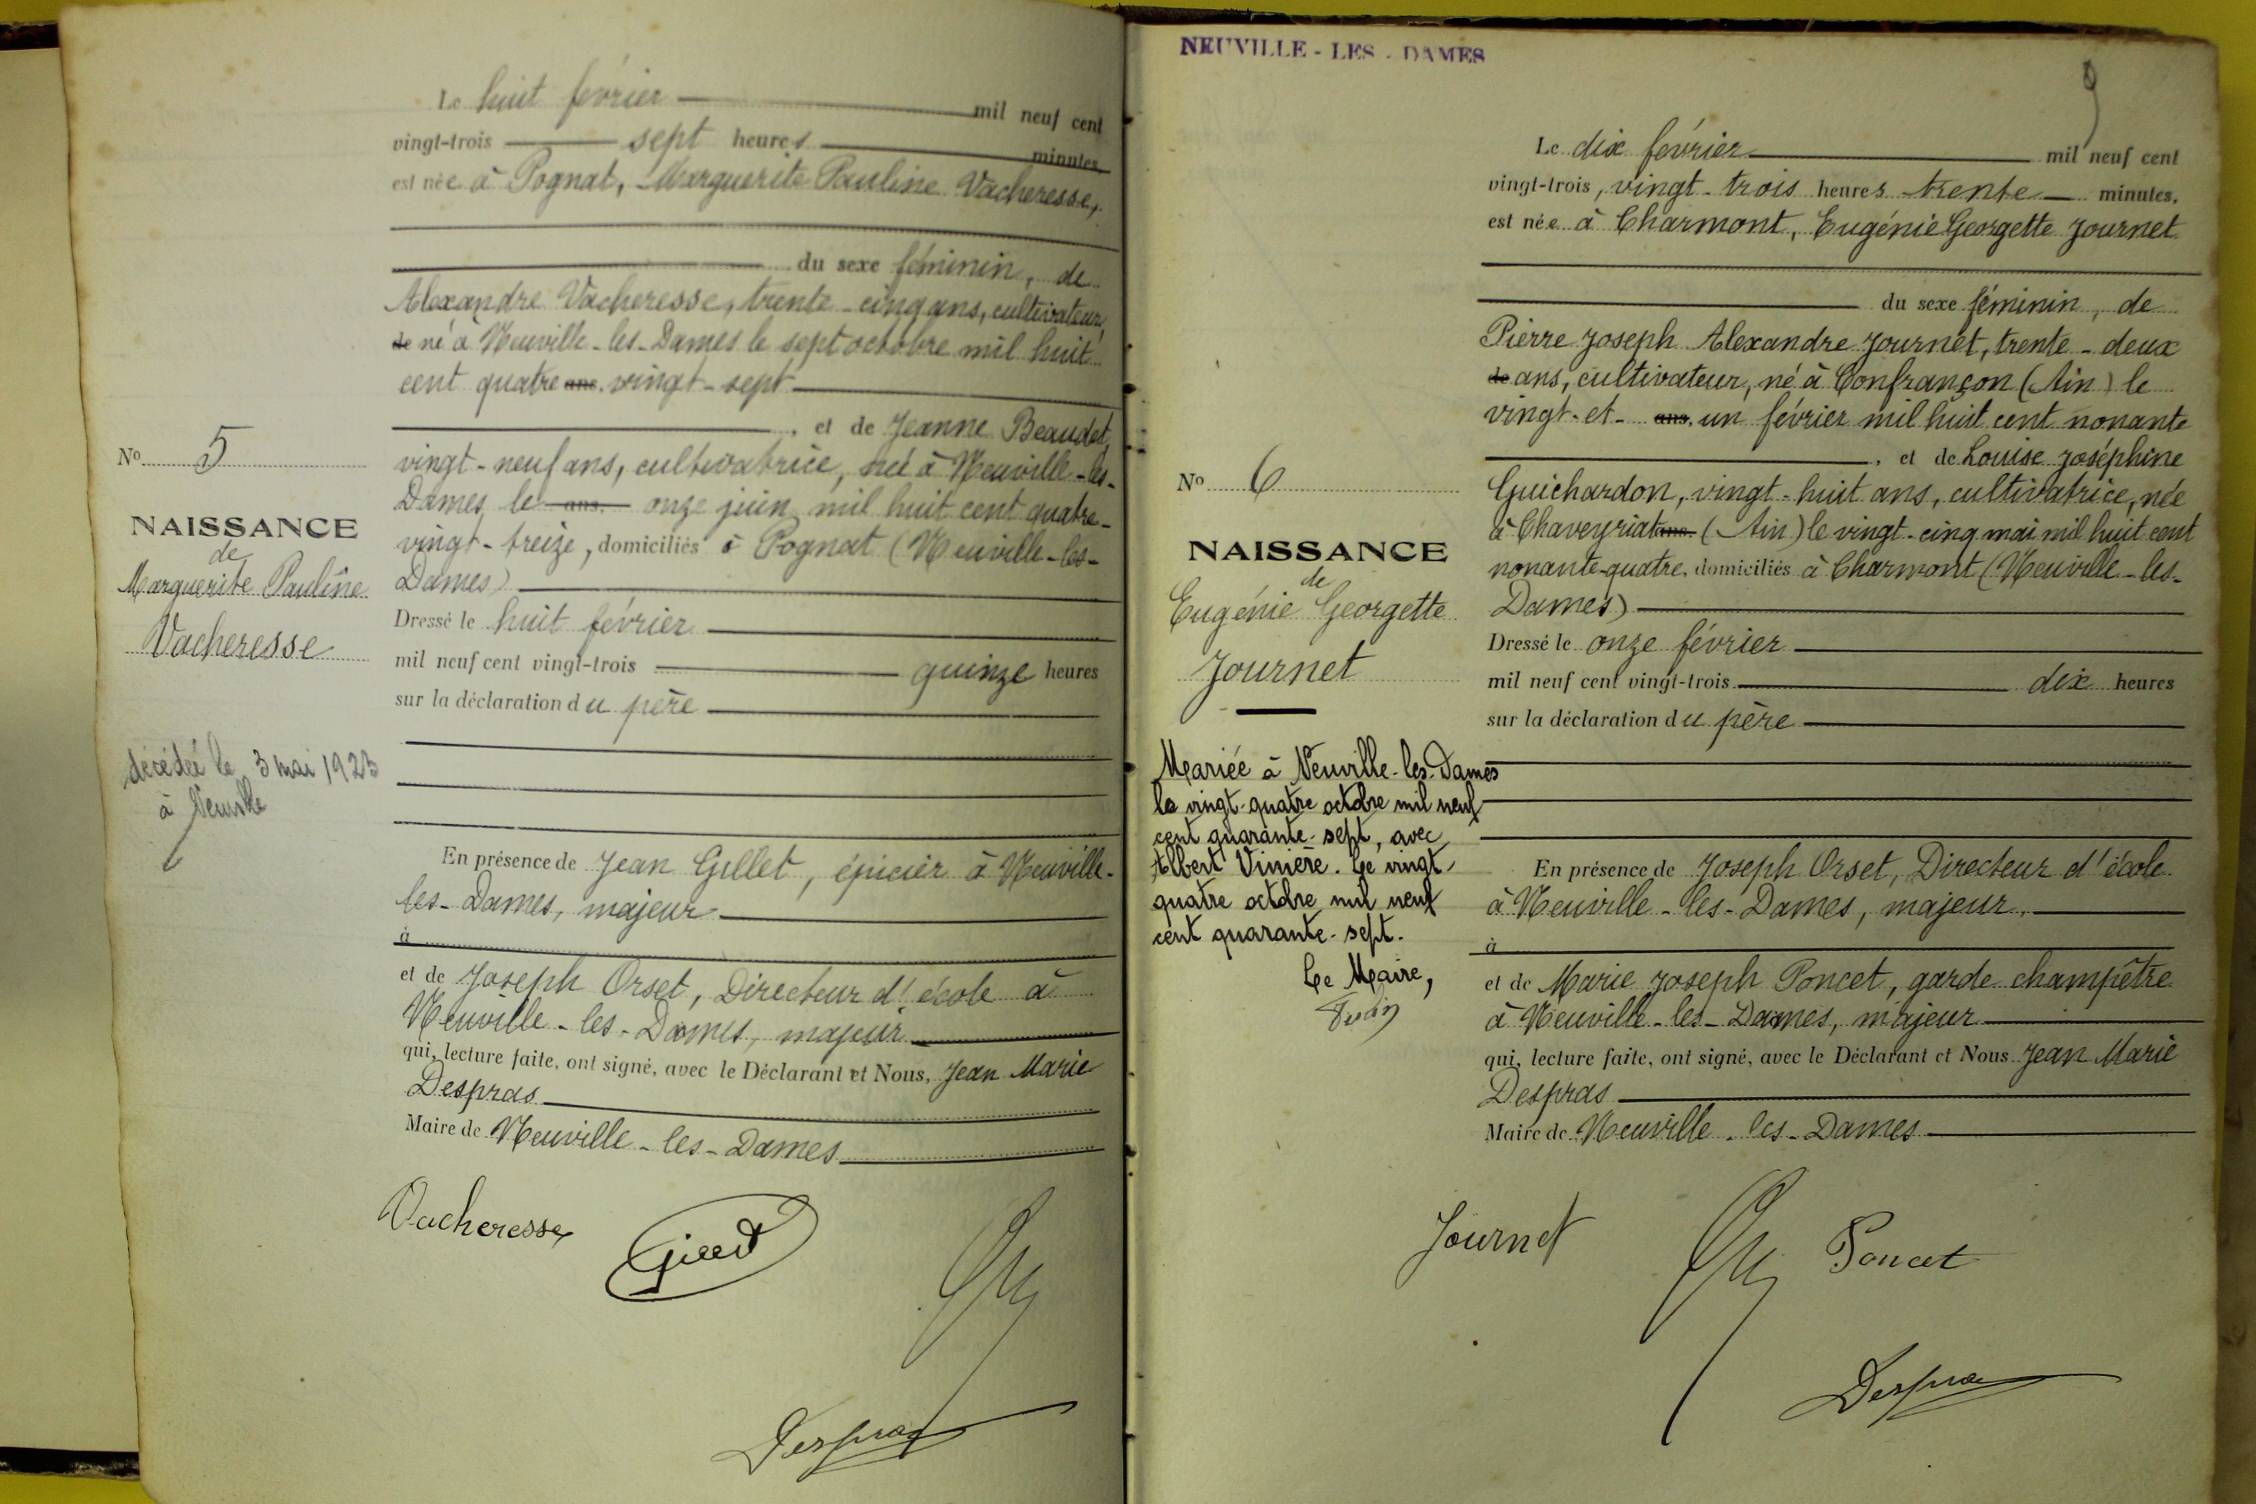 Le huit février mil neuf cent
vingt-trois sept heures minutes,
est née à Pognat, Marguerite Pauline Vacheresse,
du sexe féminin, de
Alexandre Vacheresse, trente-cinq ans, cultivateur,
de né à Neuville-les-Dames le sept octobre mil huit
cent quatre ans. vingt-sept
, et de Jeanne Beaudet
vingt-neuf ans, cultivatrice, née à Neuville-les-
Dames, le ans, onze juin mil huit cent quatre-
vingt-treize, domiciliés à Pognat (Neuville-les-
Dames)
Dressé le huit février
mil neuf cent vingt-trois quinze heures
sur la déclaration du père
En présence de Jean Gillet, épicier à Neuville-
les-Dames, majeur
à
et de Joseph Orset, Directeur d'école à
Neuville-les-Dames, majeur
qui, lecture faite, ont signé, avec le Déclarant et Nous, Jean Marie
Despras
Maire de Neuville-les-Dames
Vacheresse
Despras
No 5
NAISSANCE
de
Marguerite Pauline
Vacheresse
décédée le 3 mai 1923
à Neuville
NEUVILLE-LES-DAMES
9
Le dix février mil neuf cent
vingt-trois, vingt-trois heures trente minutes,
est née à Charmont, Eugénie Georgette Journet
du sexe féminin, de
Pierre Joseph Alexandre Journet, trente-deux
de ans, cultivateur, né à Confrançon (Ain) le
vingt-et- ans, un février mil huit cent nonante
, et de Louise Joséphine
Guichardon, vingt-huit ans, cultivatrice, née
à Chaveyriat ans. (Ain) le vingt-cinq mai mil huit cent
nonante-quatre, domiciliés à Charmont (Neuville-les-
Dames)
Dressé le onze février
mil neuf cent vingt-trois dix heures
sur la déclaration du père
En présence de Joseph Orset, Directeur d'école
à Neuville-les-Dames, majeur.
à
et de Marie Joseph Poncet, garde champêtre
à Neuville-les-Dames, majeur
qui, lecture faite, ont signé, avec le Déclarant et Nous Jean Marie
Despras
Maire de Neuville-les-Dames
Journet
Poncet
Despras
No 6
NAISSANCE
de
Eugénie Georgette
Journet
Mariée à Neuville-les-Dames
le vingt-quatre octobre mil neuf
cent quarante-sept, avec
Albert Vinière. Le vingt-
quatre octobre mil neuf
cent quarante-sept.
Le Maire,